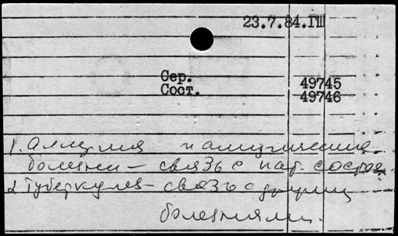 23.7.84.ГШ
Сер. 49745
Сост. 49746
1. Аллергия и аллергические
болезни – связь с пат. состоя.
2. Туберкулез – связь с другими
болезнями.